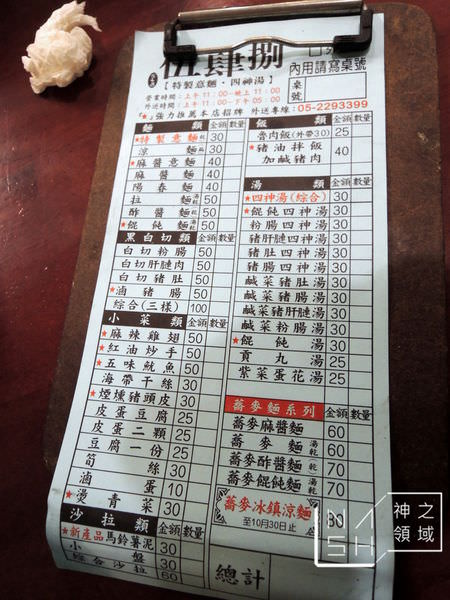 伍肆捌
【特製意麵·四神湯】
內用請寫桌號
營業時間:上午11:00-晚上11:00
外送時間:上午11:00-下午05:00
桌號
「★」強力推薦本店招牌 外送專線:05-2293399
麵類 金額 數量
★特製意麵 30
涼麵 30
★麻醬意麵 40
麻醬麵 40
陽春麵 40
拉麵 50
酢醬麵 50
★餛飩麵 50
黑白切類 金額 數量
白切粉腸 50
白切肝腱肉 50
白切豬肚 50
★滷豬腸 50
綜合(三樣) 100
小菜類 金額 數量
★麻辣雞翅 50
★紅油炒手 50
★五味魷魚 50
海帶干絲 30
★煙燻豬頭皮 30
皮蛋豆腐 25
皮蛋二顆 25
豆腐一份 25
筍絲 30
滷蛋 10
★燙青菜 30
沙拉類 金額 數量
★新產品馬鈴薯泥 30
小盤 30
綜合沙拉 60
飯類 金額 數量
魯肉飯(外帶30) 25
★豬油拌飯加鹹豬肉 40
湯類 金額 數量
★四神湯(綜合) 30
★餛飩四神湯 30
粉腸四神湯 30
豬肝腱四神湯 30
豬肚四神湯 30
鹹菜豬肚湯 30
鹹菜豬腸湯 30
鹹菜豬肝腱湯 30
鹹菜粉腸湯 30
★餛飩湯 30
貢丸湯 25
紫菜蛋花湯 25
蕎麥麵系列 金額 數量
蕎麥麻醬麵 60
蕎麥麵 湯乾 60
蕎麥酢醬麵 乾 70
蕎麥餛飩麵 湯乾 70
蕎麥冰鎮涼麵 80
至10月30日止
總計
神之領域